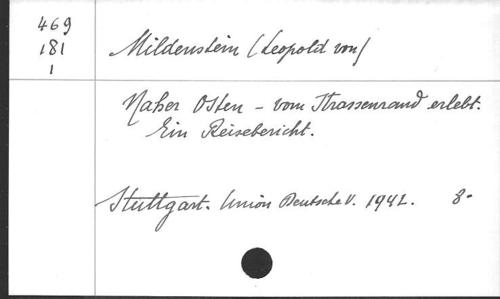 469
181
1
Mildenstein (Leopold von)
Naher Osten - vom Strassenrand erlebt.
Ein Reisebericht.
Stuttgart. Union Deutsche V. 1942. 8º